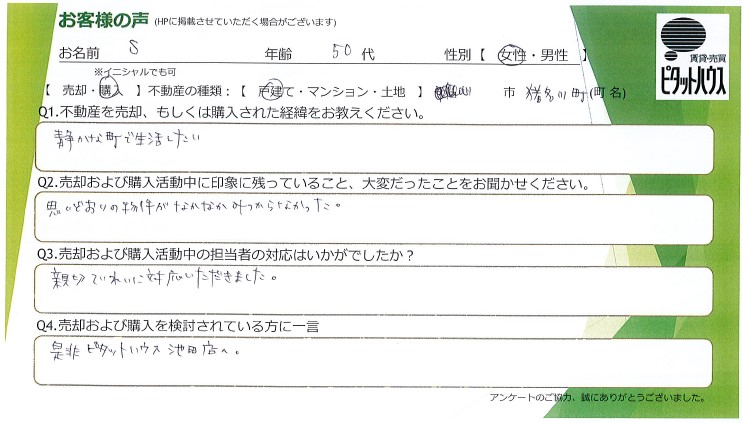 お客様の声 (HPに掲載させていただく場合がございます)
お名前 S 年齢 50代 性別【 女性・男性 】
※イニシャルでも可
【 売却・購入 】不動産の種類:【 戸建て・マンション・土地 】 市 猪名川町(町名)
賃貸・売買
ピタットハウス
Q1.不動産を売却、もしくは購入された経緯をお教えください。
静かな町で生活したい
Q2.売却および購入活動中に印象に残っていること、大変だったことをお聞かせください。
思いどおりの物件がなかなかみつからなかった。
Q3.売却および購入活動中の担当者の対応はいかがでしたか?
親切ていねいに対応いただきました。
Q4.売却および購入を検討されている方に一言
是非ピタットハウス池田店へ。
アンケートのご協力、誠にありがとうございました。